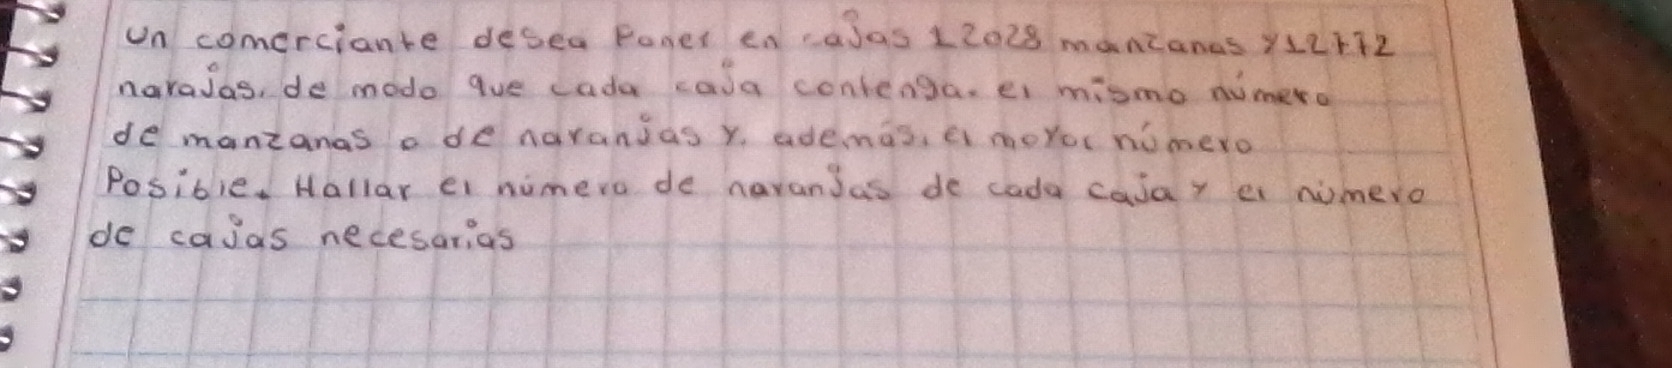 un comerciante desea Poner en cajas 12028 manzanas y 12772
narajas. de modo que cada caja contenga. el mismo número
de manzanas o de naranjas y. además, el moyor número
Posible. Hallar el número de naranjas de cada caja y el número
de cajas necesarias